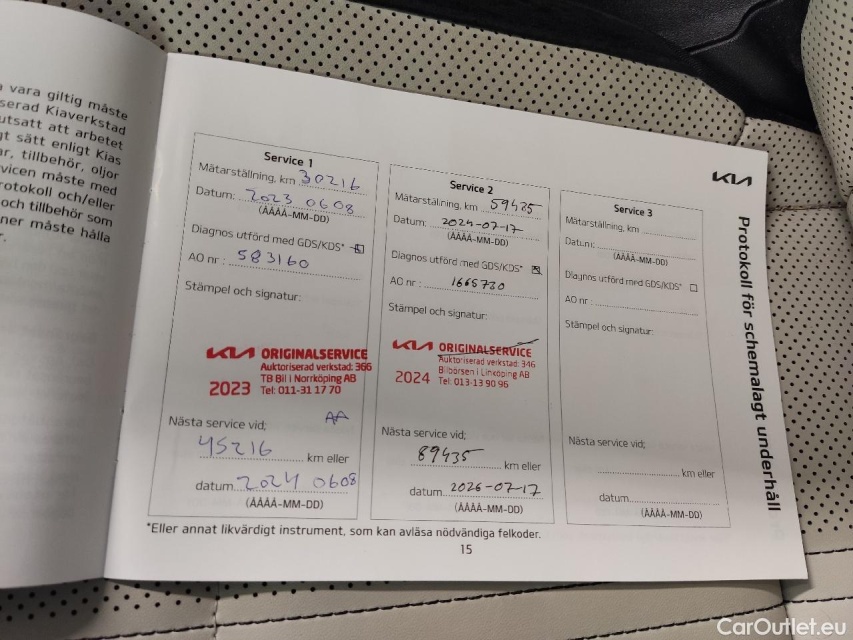 vara giltig måste
serad Kiaverkstad
utsatt att arbetet
gt sätt enligt Kias
ar, tillbehör, oljor
vicen måste med
rotokoll och/eller
och tillbehör som
ner måste hålla
r.
KIA
Protokoll för schemalagt underhåll
Service 1
Mätarställning, km 30216
Datum: 2023 0608
(ÅÅÅÅ-MM-DD)
Diagnos utförd med GDS/KDS*
AO nr : 583160
Stämpel och signatur:
KIA ORIGINALSERVICE
Auktoriserad verkstad: 366
TB Bil i Norrköping AB
2023 Tel: 011-31 17 70
AA
Nästa service vid;
45216 km eller
datum 2024 0608
(ÅÅÅÅ-MM-DD)
Service 2
Mätarställning, km 59435
Datum: 2024-07-17
(ÅÅÅÅ-MM-DD)
Diagnos utförd med GDS/KDS*
AO nr : 1665730
Stämpel och signatur:
KIA ORIGINALSERVICE
Auktoriserad verkstad: 346
Bilbörsen i Linköping AB
2024 Tel: 013-13 90 96
Nästa service vid;
89435 km eller
datum 2026-07-17
(ÅÅÅÅ-MM-DD)
Service 3
Mätarställning, km
Datum:
(ÅÅÅÅ-MM-DD)
Diagnos utförd med GDS/KDS*
AO nr :
Stämpel och signatur:
Nästa service vid;
km eller
datum
(ÅÅÅÅ-MM-DD)
*Eller annat likvärdigt instrument, som kan avläsa nödvändiga felkoder.
15
CarOutlet.eu